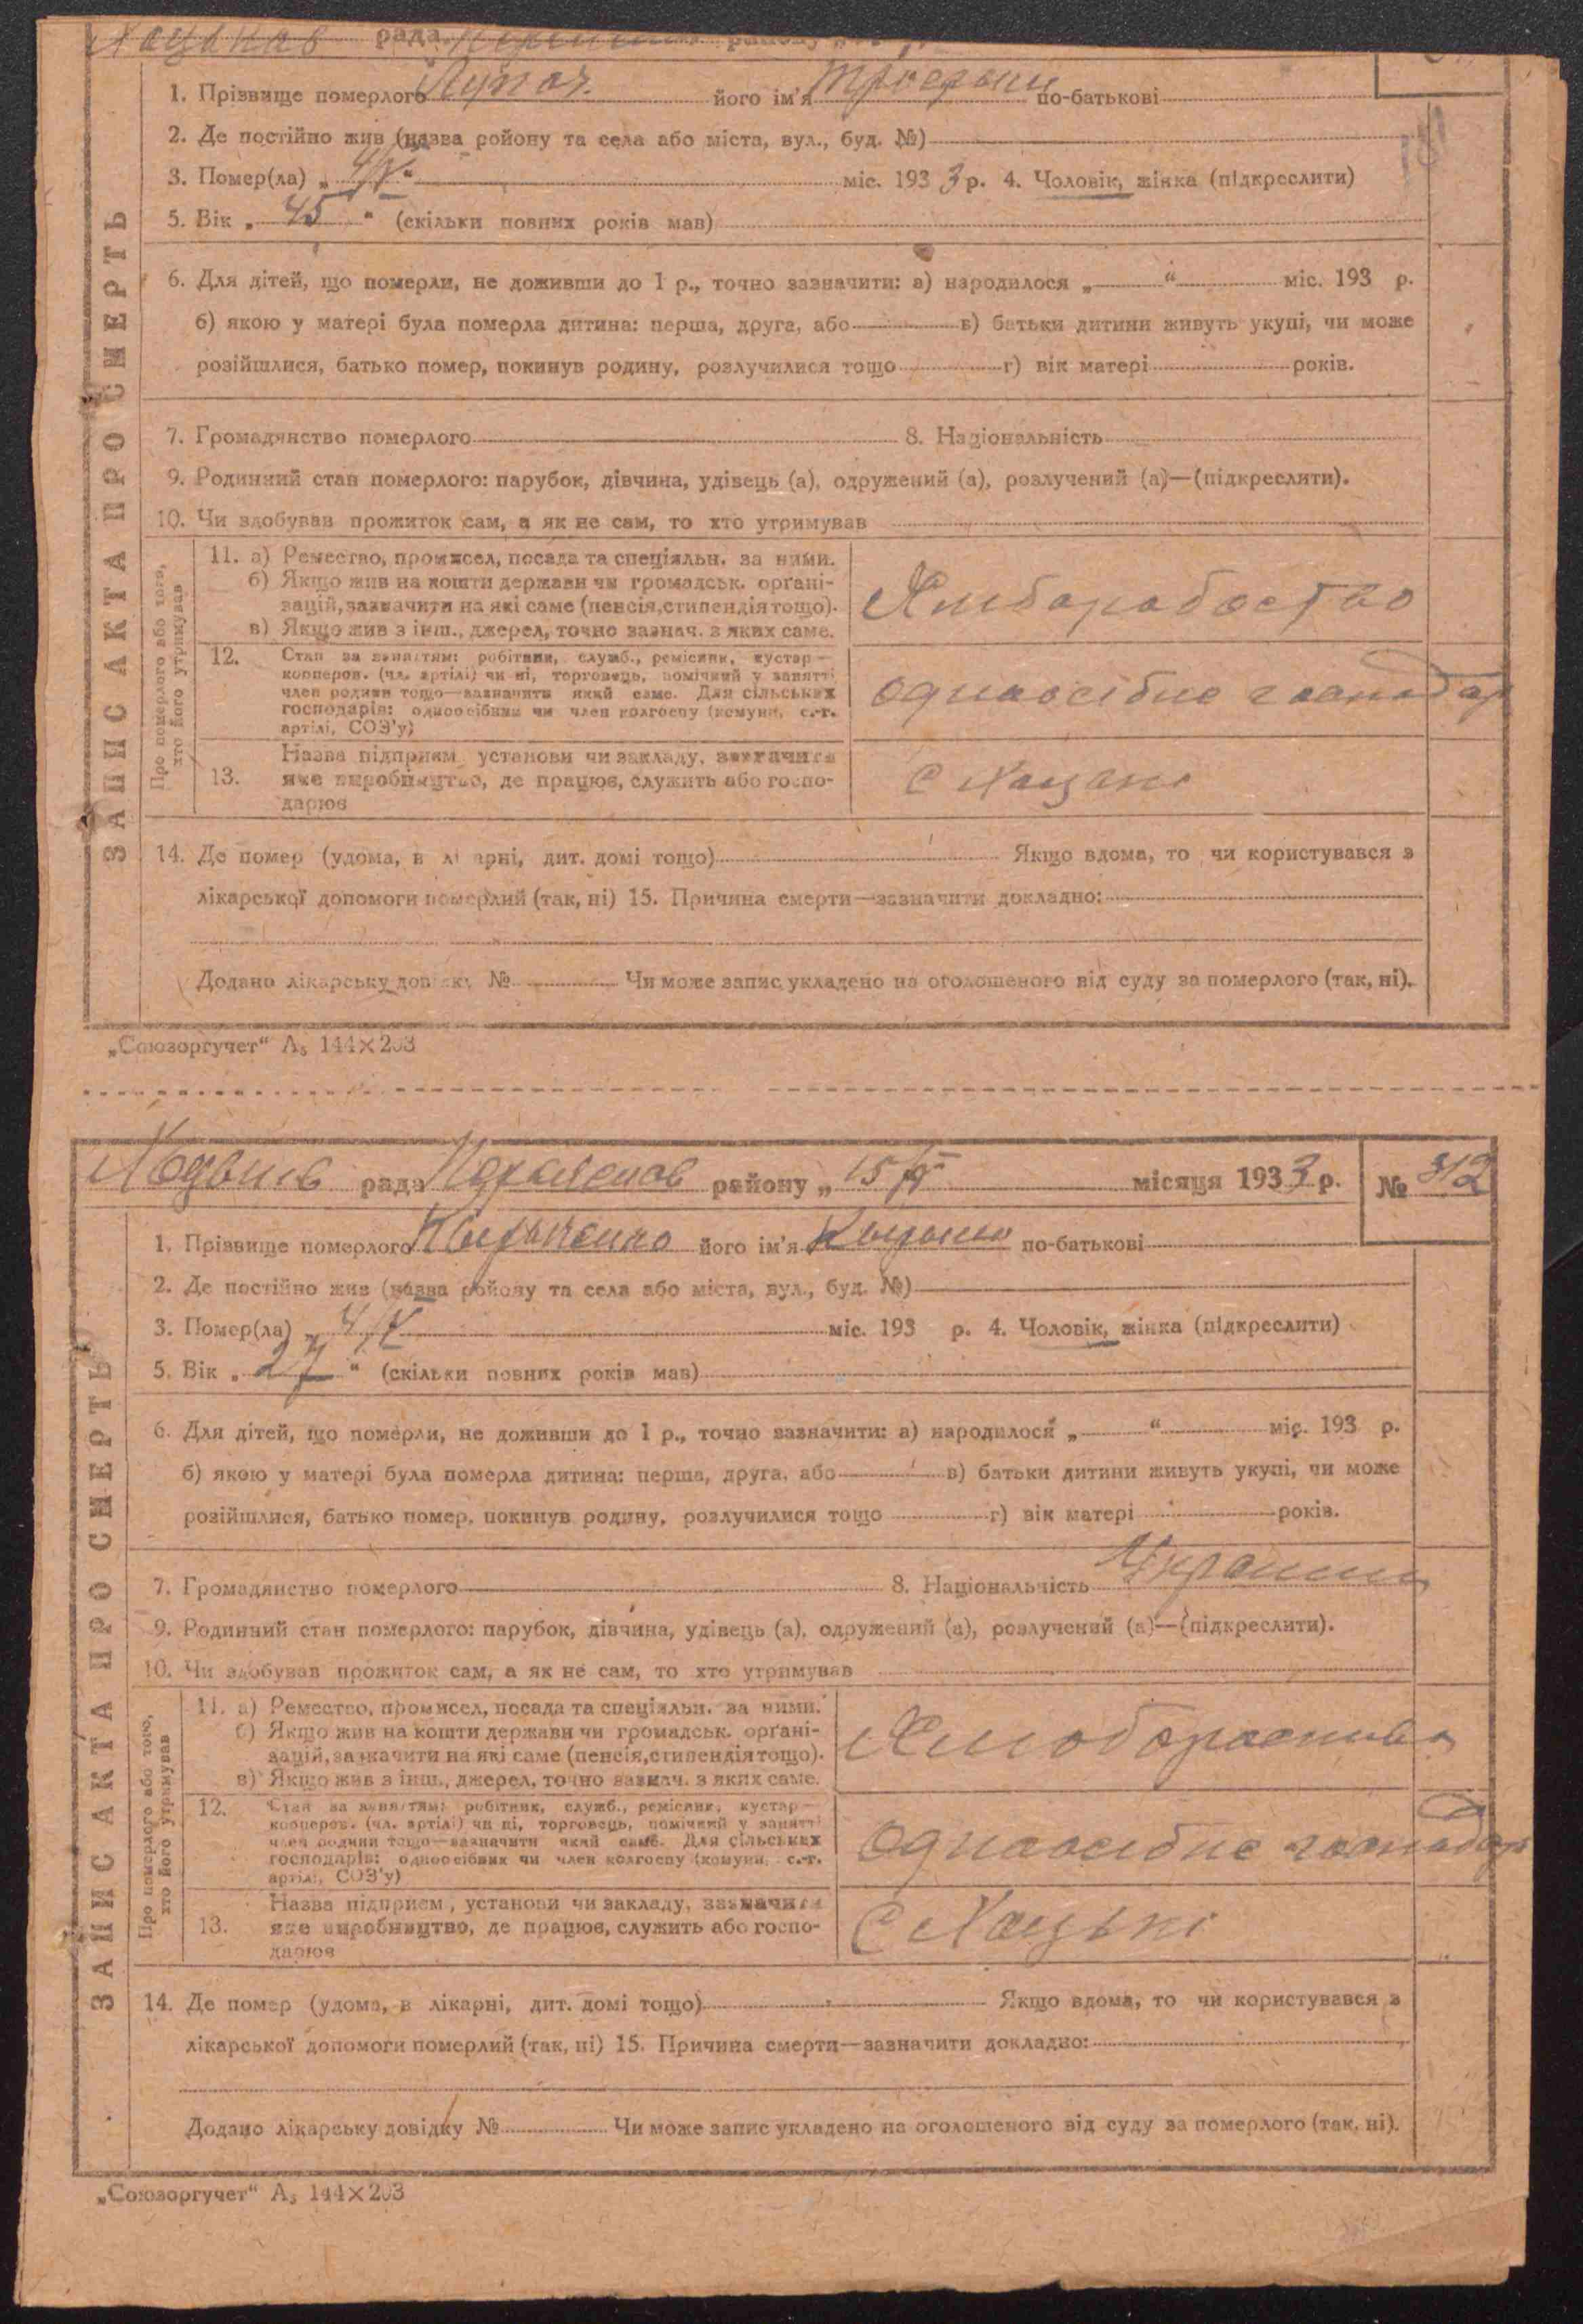 рада
1. Прізвище померлого його ім'я по-батькові
2. Де постійно жив (назва району та села або міста, вул., буд. №)
3. Помер(ла) „ 4/V “ міс. 193 3 р. 4. Чоловік, жінка (підкреслити)
5. Вік „ 45 “ (скільки повних років мав)
6. Для дітей, що померли, не доживши до 1 р., точно зазначити: а) народилося „ “ міс. 193 р.
б) якою у матері була померла дитина: перша, друга, або в) батьки дитини живуть укупі, чи може
розійшлися, батько помер, покинув родину, розлучилися тощо г) вік матері років.
7. Громадянство померлого 8. Національність
9. Родинний стан померлого: парубок, дівчина, удівець (а), одружений (а), розлучений (а)—(підкреслити).
10. Чи здобував прожиток сам, а як не сам, то хто утримував
ЗАПИС АКТА ПРО СМЕРТЬ
Про померлого або того,
хто його утримував
11. а) Ремество, промисел, посада та спеціяльн. за ними.
б) Якщо жив на кошти держави чи громадськ. органі-
зацій, зазначити на які саме (пенсія, стипендія тощо).
в) Якщо жив з інш., джерел, точно зазнач. з яких саме.
12. Стан за заняттям: робітник, служб., ремісник, кустар—
кооперов. (чл. артілі) чи ні, торговець, помічний у занятті
член родини тощо—зазначити який саме. Для сільських
господарів: одноосібник чи член колгоспу (комуни, с.-г.
артілі, СОЗ'у)
одноосібне господар
13. Назва підприєм. установи чи закладу, зазначити
яке виробництво, де працює, служить або госпо-
дарює
14. Де помер (удома, в лікарні, дит. домі тощо) Якщо вдома, то чи користувався з
лікарської допомоги померлий (так, ні) 15. Причина смерти—зазначити докладно:
Додано лікарську довідку № Чи може запис укладено на оголошеного від суду за померлого (так, ні).
„Союзоргучет“ А₅ 144×203
рада району „ 15/V місяця 193 3 р. № 312
1. Прізвище померлого його ім'я по-батькові
2. Де постійно жив (назва району та села або міста, вул., буд. №)
3. Помер(ла) „ 4/V міс. 193 р. 4. Чоловік, жінка (підкреслити)
5. Вік „ 27 “ (скільки повних років мав)
6. Для дітей, що померли, не доживши до 1 р., точно зазначити: а) народилося „ “ міс. 193 р.
б) якою у матері була померла дитина: перша, друга, або в) батьки дитини живуть укупі, чи може
розійшлися, батько помер, покинув родину, розлучилися тощо г) вік матері років.
7. Громадянство померлого 8. Національність
9. Родинний стан померлого: парубок, дівчина, удівець (а), одружений (а), розлучений (а)—(підкреслити).
10. Чи здобував прожиток сам, а як не сам, то хто утримував
ЗАПИС АКТА ПРО СМЕРТЬ
Про померлого або того,
хто його утримував
11. а) Ремество, промисел, посада та спеціяльн. за ними.
б) Якщо жив на кошти держави чи громадськ. органі-
зацій, зазначити на які саме (пенсія, стипендія тощо).
в) Якщо жив з інш., джерел, точно зазнач. з яких саме.
12. Стан за заняттям: робітник, служб., ремісник, кустар—
кооперов. (чл. артілі) чи ні, торговець, помічний у занятті
член родини тощо—зазначити який саме. Для сільських
господарів: одноосібник чи член колгоспу (комуни, с.-г.
артілі, СОЗ'у)
одноосібне господар
13. Назва підприєм., установи чи закладу, зазначити
яке виробництво, де працює, служить або госпо-
дарює
14. Де помер (удома, в лікарні, дит. домі тощо) Якщо вдома, то чи користувався з
лікарської допомоги померлий (так, ні) 15. Причина смерти—зазначити докладно:
Додано лікарську довідку № Чи може запис укладено на оголошеного від суду за померлого (так, ні).
„Союзоргучет“ А₅ 144×203